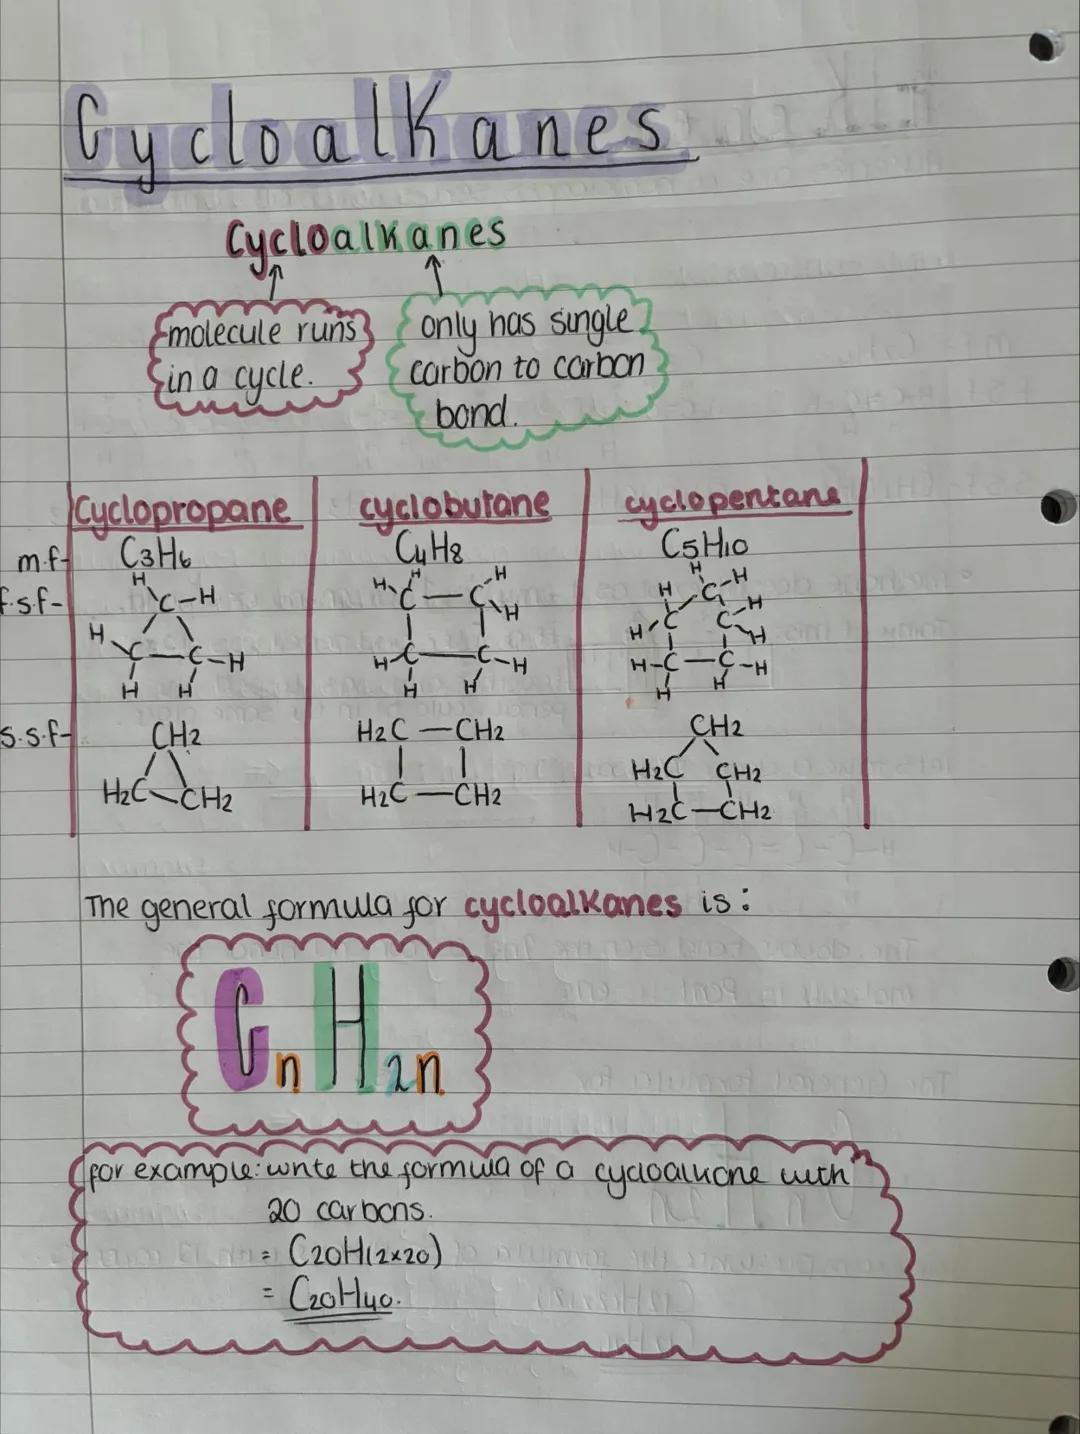 Cycloalkanes
Cycloalkanes
molecule runs
in a cycle.
only has single
carbon to carbon
bond.
Cyclopropane cyclobutane cyclopentane
m.f- C3H6 C4H8 C5H10
f.s.f-
H
C-H
H
C-C-H
H H
H H H
C-C H
H-C-C-H
H H
H H
H C-H
H C C-H
H
H-C-C-H
H H
s.s.f- CH2 H2C-CH2 CH2
H2C CH2
H2C-CH2 H2C-CH2 H2C-CH2
The general formula for cycloalkanes is:
CnH2n
for example: write the formula of a cycloalkane with
20 carbons.
= C20H(2x20)
= C20H40.